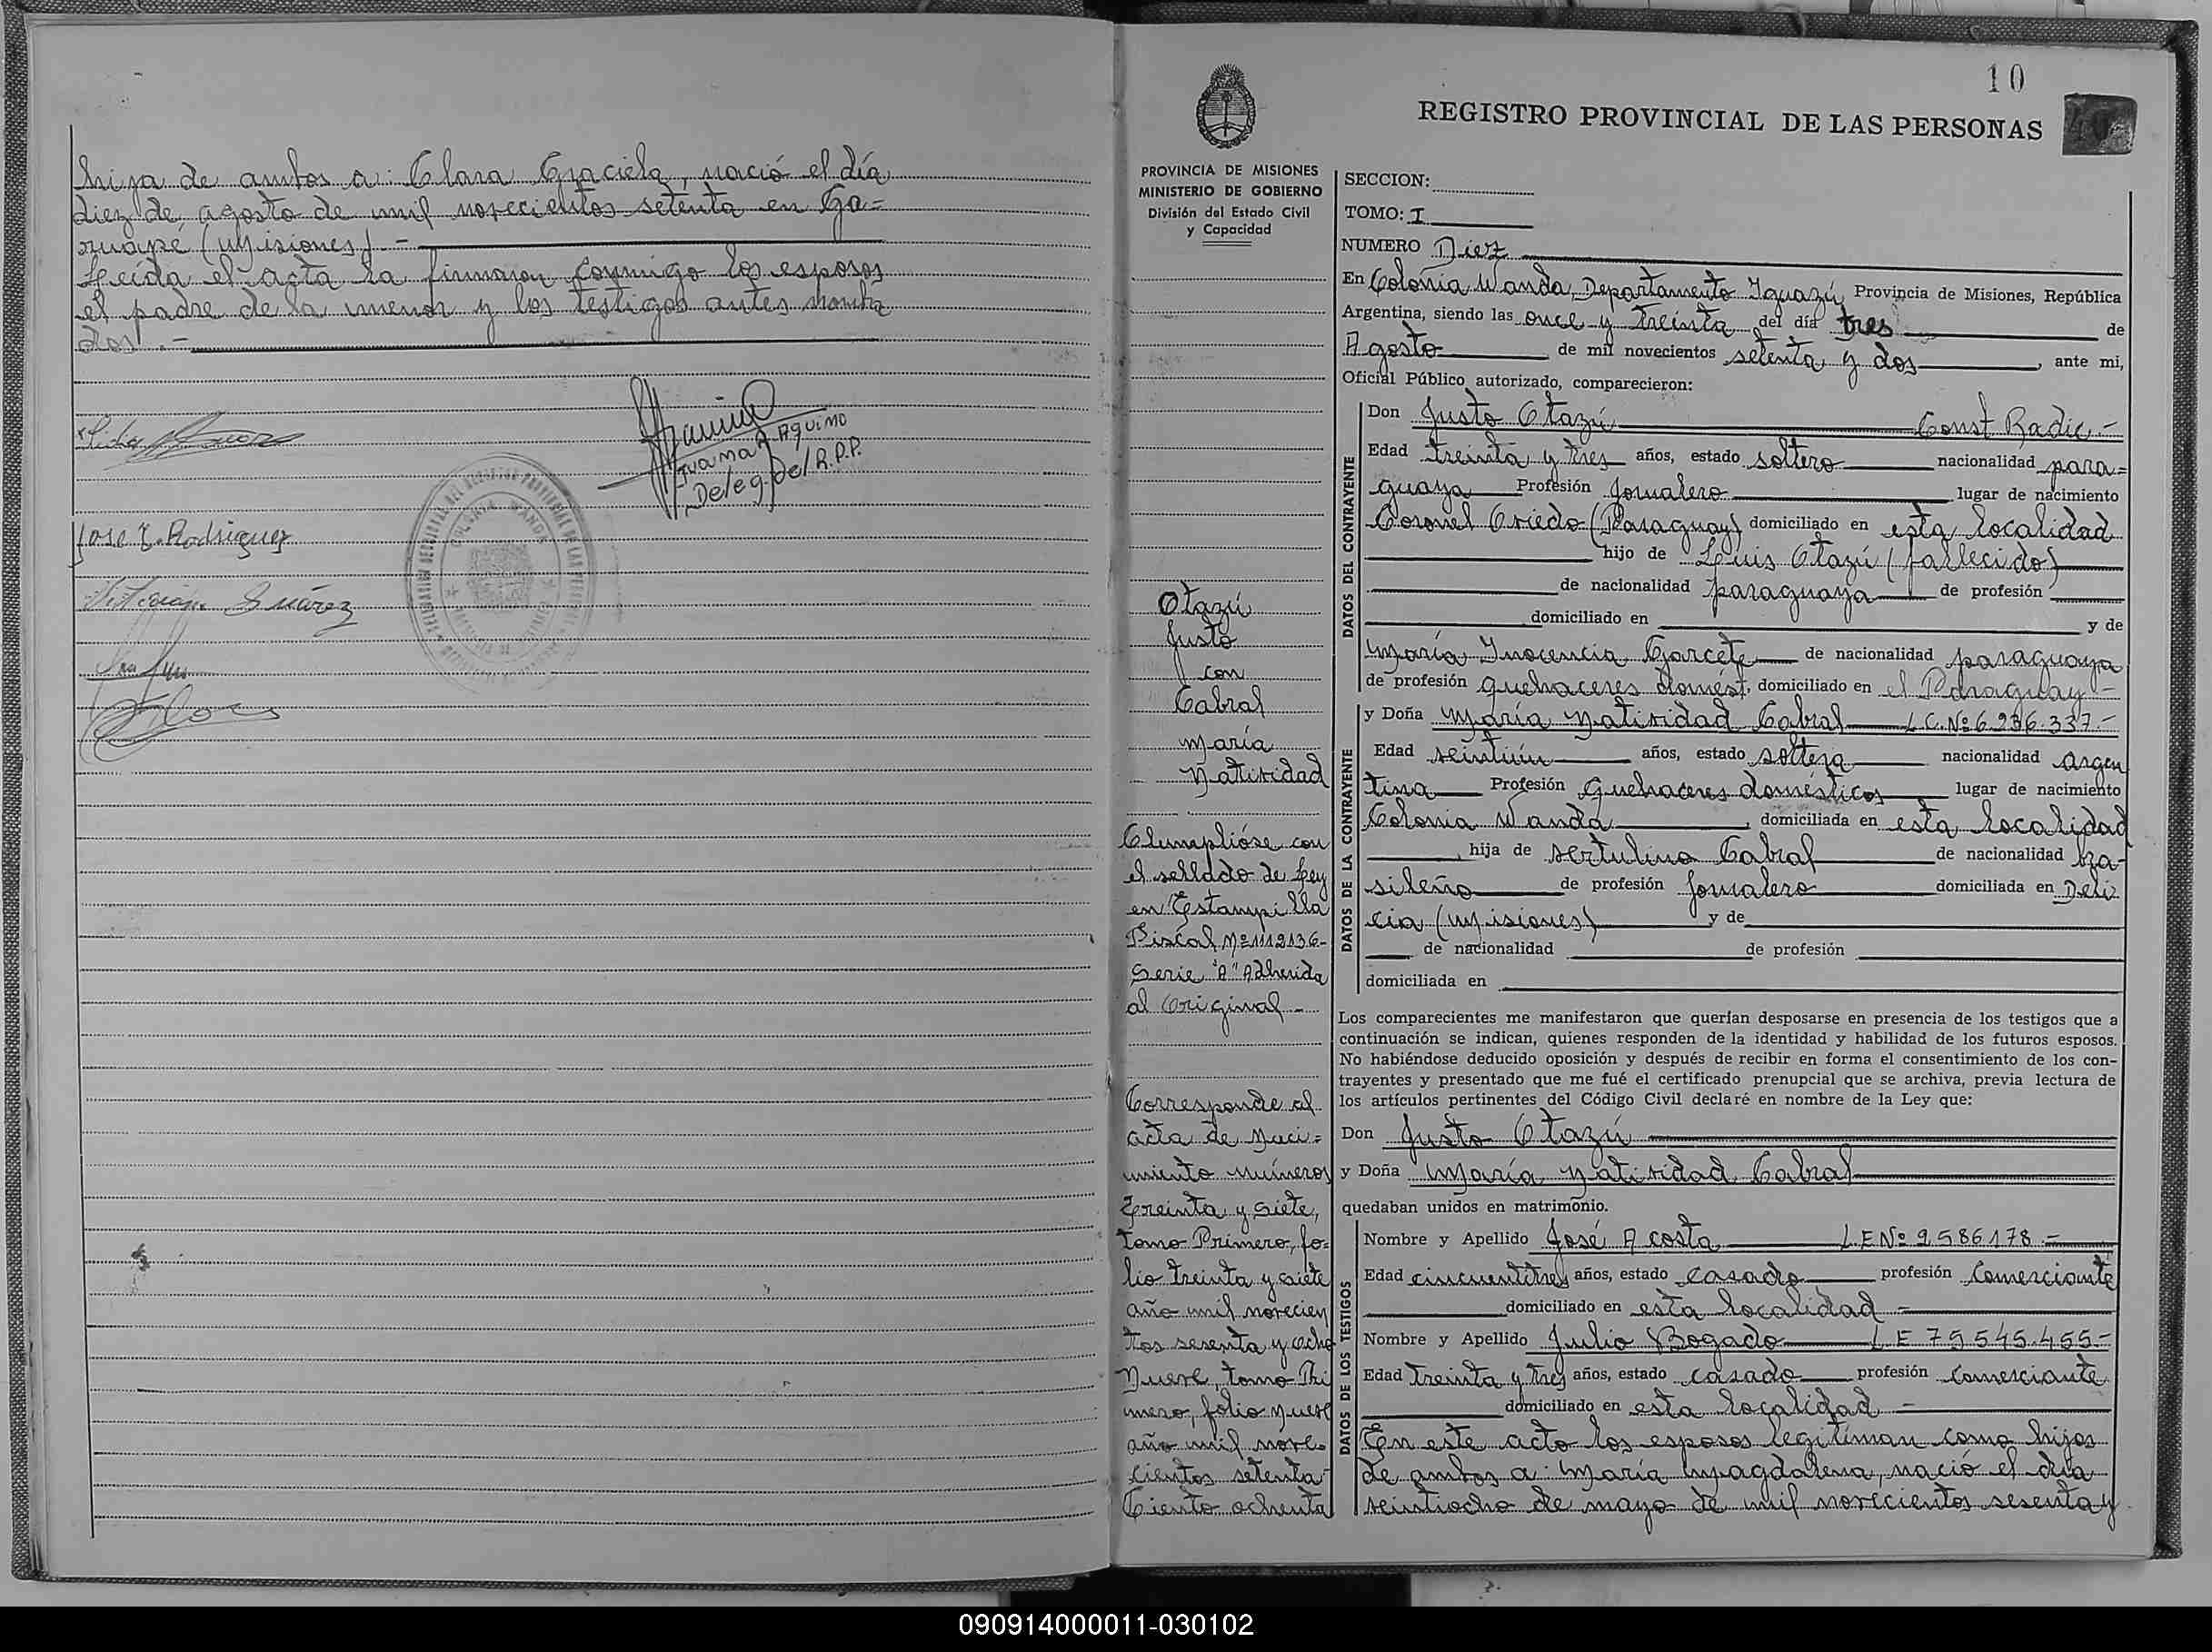 hija de ambos a: Clara Graciela, nació el día
diez de agosto de mil novecientos setenta en Ga=
ruapé (Misiones).-
Leída el acta la firmaron conmigo los esposos
el padre de la menor y los testigos antes nombra
dos.-
Juama A. Aquino
Deleg. Del R.P.P.
Jose Z. Rodriguez
Suárez
Flores
10
REGISTRO PROVINCIAL DE LAS PERSONAS
PROVINCIA DE MISIONES
MINISTERIO DE GOBIERNO
División del Estado Civil
y Capacidad
Otazú
Justo
con
Cabral
María
Natividad
Clumplióse con
el sellado de Ley
en Estampilla
Fiscal Nº1112136-
Serie "A" Adherida
al Original.-
Corresponde al
acta de Naci=
miento números
Treinta y siete,
tomo Primero, fo=
lio treinta y siete
año mil novecien
tos sesenta y ocho
Nueve, tomo Pri
mero, folio Nueve
año mil nove-
cientos setenta-
Ciento ochenta
SECCION:
TOMO: I
NUMERO Diez
En Colonia Wanda, Departamento Iguazú, Provincia de Misiones, República
Argentina, siendo las once y treinta del día tres de
Agosto de mil novecientos setenta y dos, ante mi,
Oficial Público autorizado, comparecieron:
DATOS DEL CONTRAYENTE
Don Justo Otazú Const. Radic.-
Edad treinta y tres años, estado soltero nacionalidad para=
guaya Profesión Jornalero lugar de nacimiento
Coronel Oviedo (Paraguay) domiciliado en esta localidad
hijo de Luis Otazú (fallecido)
de nacionalidad paraguaya de profesión
domiciliado en y de
María Inocencia Garcete de nacionalidad paraguaya
de profesión quehaceres domést. domiciliado en el Paraguay-
DATOS DE LA CONTRAYENTE
y Doña María Natividad Cabral L.C.Nº6.236.337.-
Edad veintiún años, estado soltera nacionalidad argen
tina Profesión Quehaceres domésticos lugar de nacimiento
Colonia Wanda, domiciliada en esta localidad
, hija de Vertulino Cabral de nacionalidad bra-
sileño de profesión Jornalero domiciliada en Deli
cia (Misiones) y de
de nacionalidad de profesión
domiciliada en
Los comparecientes me manifestaron que querían desposarse en presencia de los testigos que a
continuación se indican, quienes responden de la identidad y habilidad de los futuros esposos.
No habiéndose deducido oposición y después de recibir en forma el consentimiento de los con-
trayentes y presentado que me fué el certificado prenupcial que se archiva, previa lectura de
los artículos pertinentes del Código Civil declaré en nombre de la Ley que:
Don Justo Otazú
y Doña María Natividad Cabral
quedaban unidos en matrimonio.
DATOS DE LOS TESTIGOS
Nombre y Apellido José Acosta L.E Nº 2586178.-
Edad cincuentitres años, estado casado profesión Comerciante
domiciliado en esta localidad -
Nombre y Apellido Julio Bogado L.E 7.5.545.455.-
Edad treinta y tres años, estado casado profesión comerciante
domiciliado en esta localidad -
En este acto los esposos legitiman como hijos
de ambos a: María Magdalena, nació el día
veintiocho de mayo de mil novecientos sesenta y
090914000011-030102